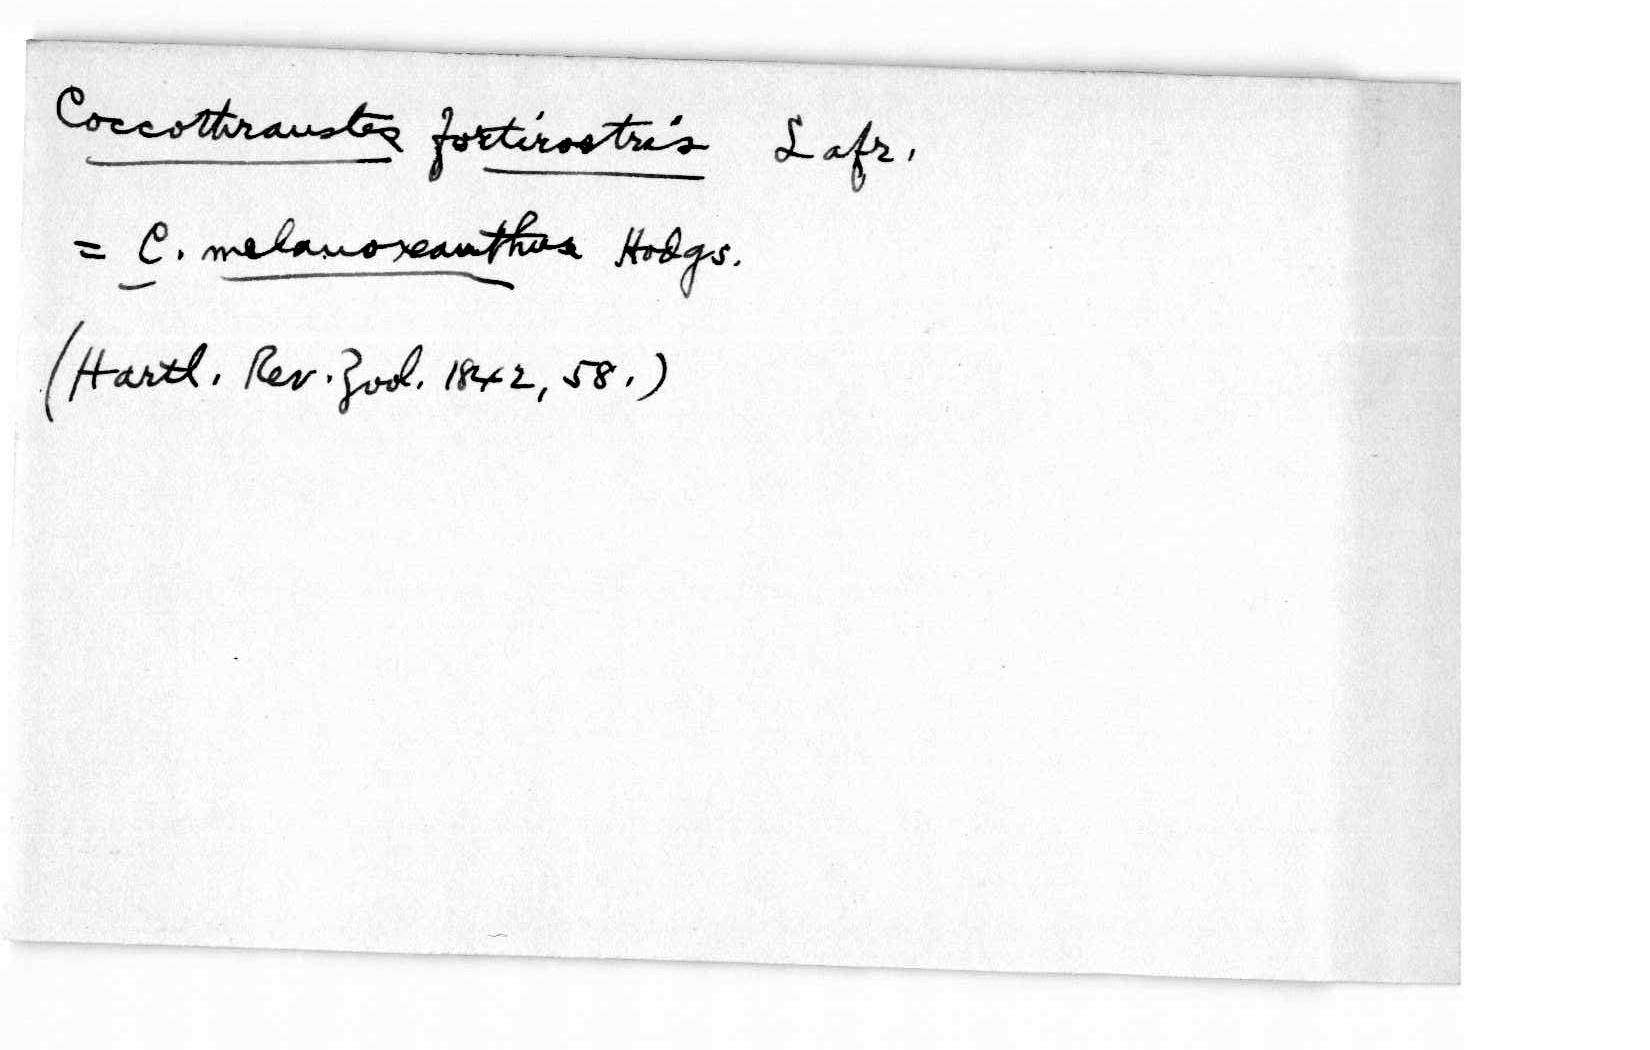 Coccothraustes fortirostris Lafr.
= C. melanoxanthus Hodgs.
(Hartl. Rev. Zool. 1842, 58.)